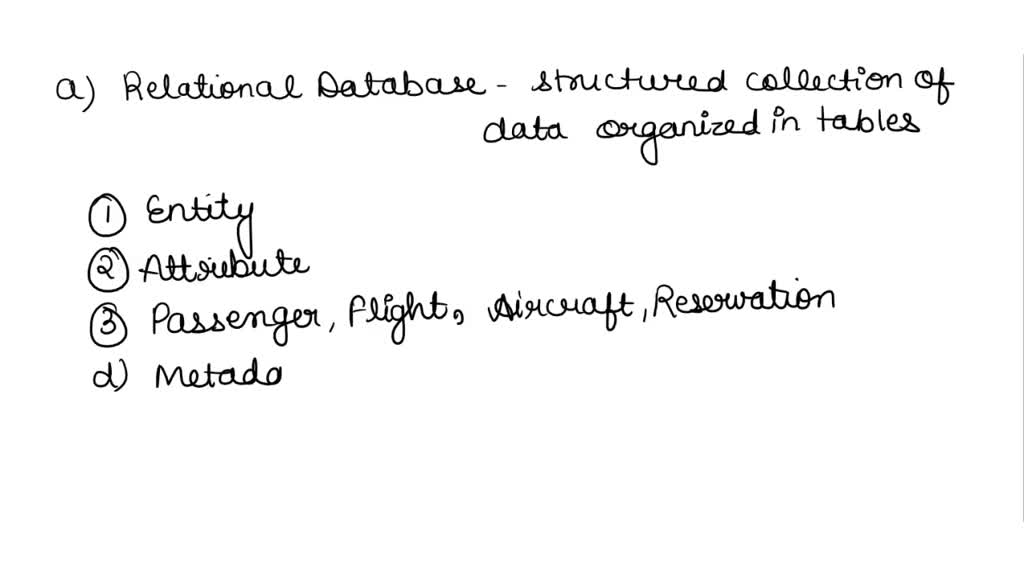 a) Relational Database - structured collection of
data organized in tables
① Entity
② Attribute
③ Passenger, Flight, Aircraft, Reservation
d) Metada